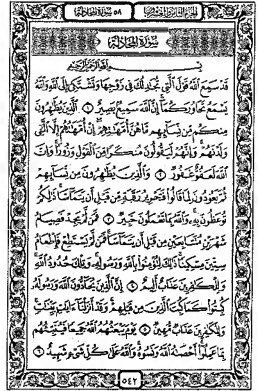 الجزء الثامن والعشرون ٥٨ سورة المجادلة
سورة المجادلة
بسم الله الرحمن الرحيم
قد سمع الله قول التي تجادلك في زوجها وتشتكي إلى الله والله
يسمع تحاوركما إن الله سميع بصير ١ الذين يظاهرون
منكم من نسائهم ما هن أمهاتهم إن أمهاتهم إلا الئي
ولدنهم وإنهم ليقولون منكرا من القول وزورا وإن
الله لعفو غفور ٢ والذين يظاهرون من نسائهم
ثم يعودون لما قالوا فتحرير رقبة من قبل أن يتماسا ذلكم
توعظون به والله بما تعملون خبير ٣ فمن لم يجد فصيام
شهرين متتابعين من قبل أن يتماسا فمن لم يستطع فإطعام
ستين مسكينا ذلك لتؤمنوا بالله ورسوله وتلك حدود الله
وللكافرين عذاب أليم ٤ إن الذين يحادون الله ورسوله
كبتوا كما كبت الذين من قبلهم وقد أنزلنا آيات بينات
وللكافرين عذاب مهين ٥ يوم يبعثهم الله جميعا فينبئهم
بما عملوا أحصاه الله ونسوه والله على كل شيء شهيد ٦
٥٤٢